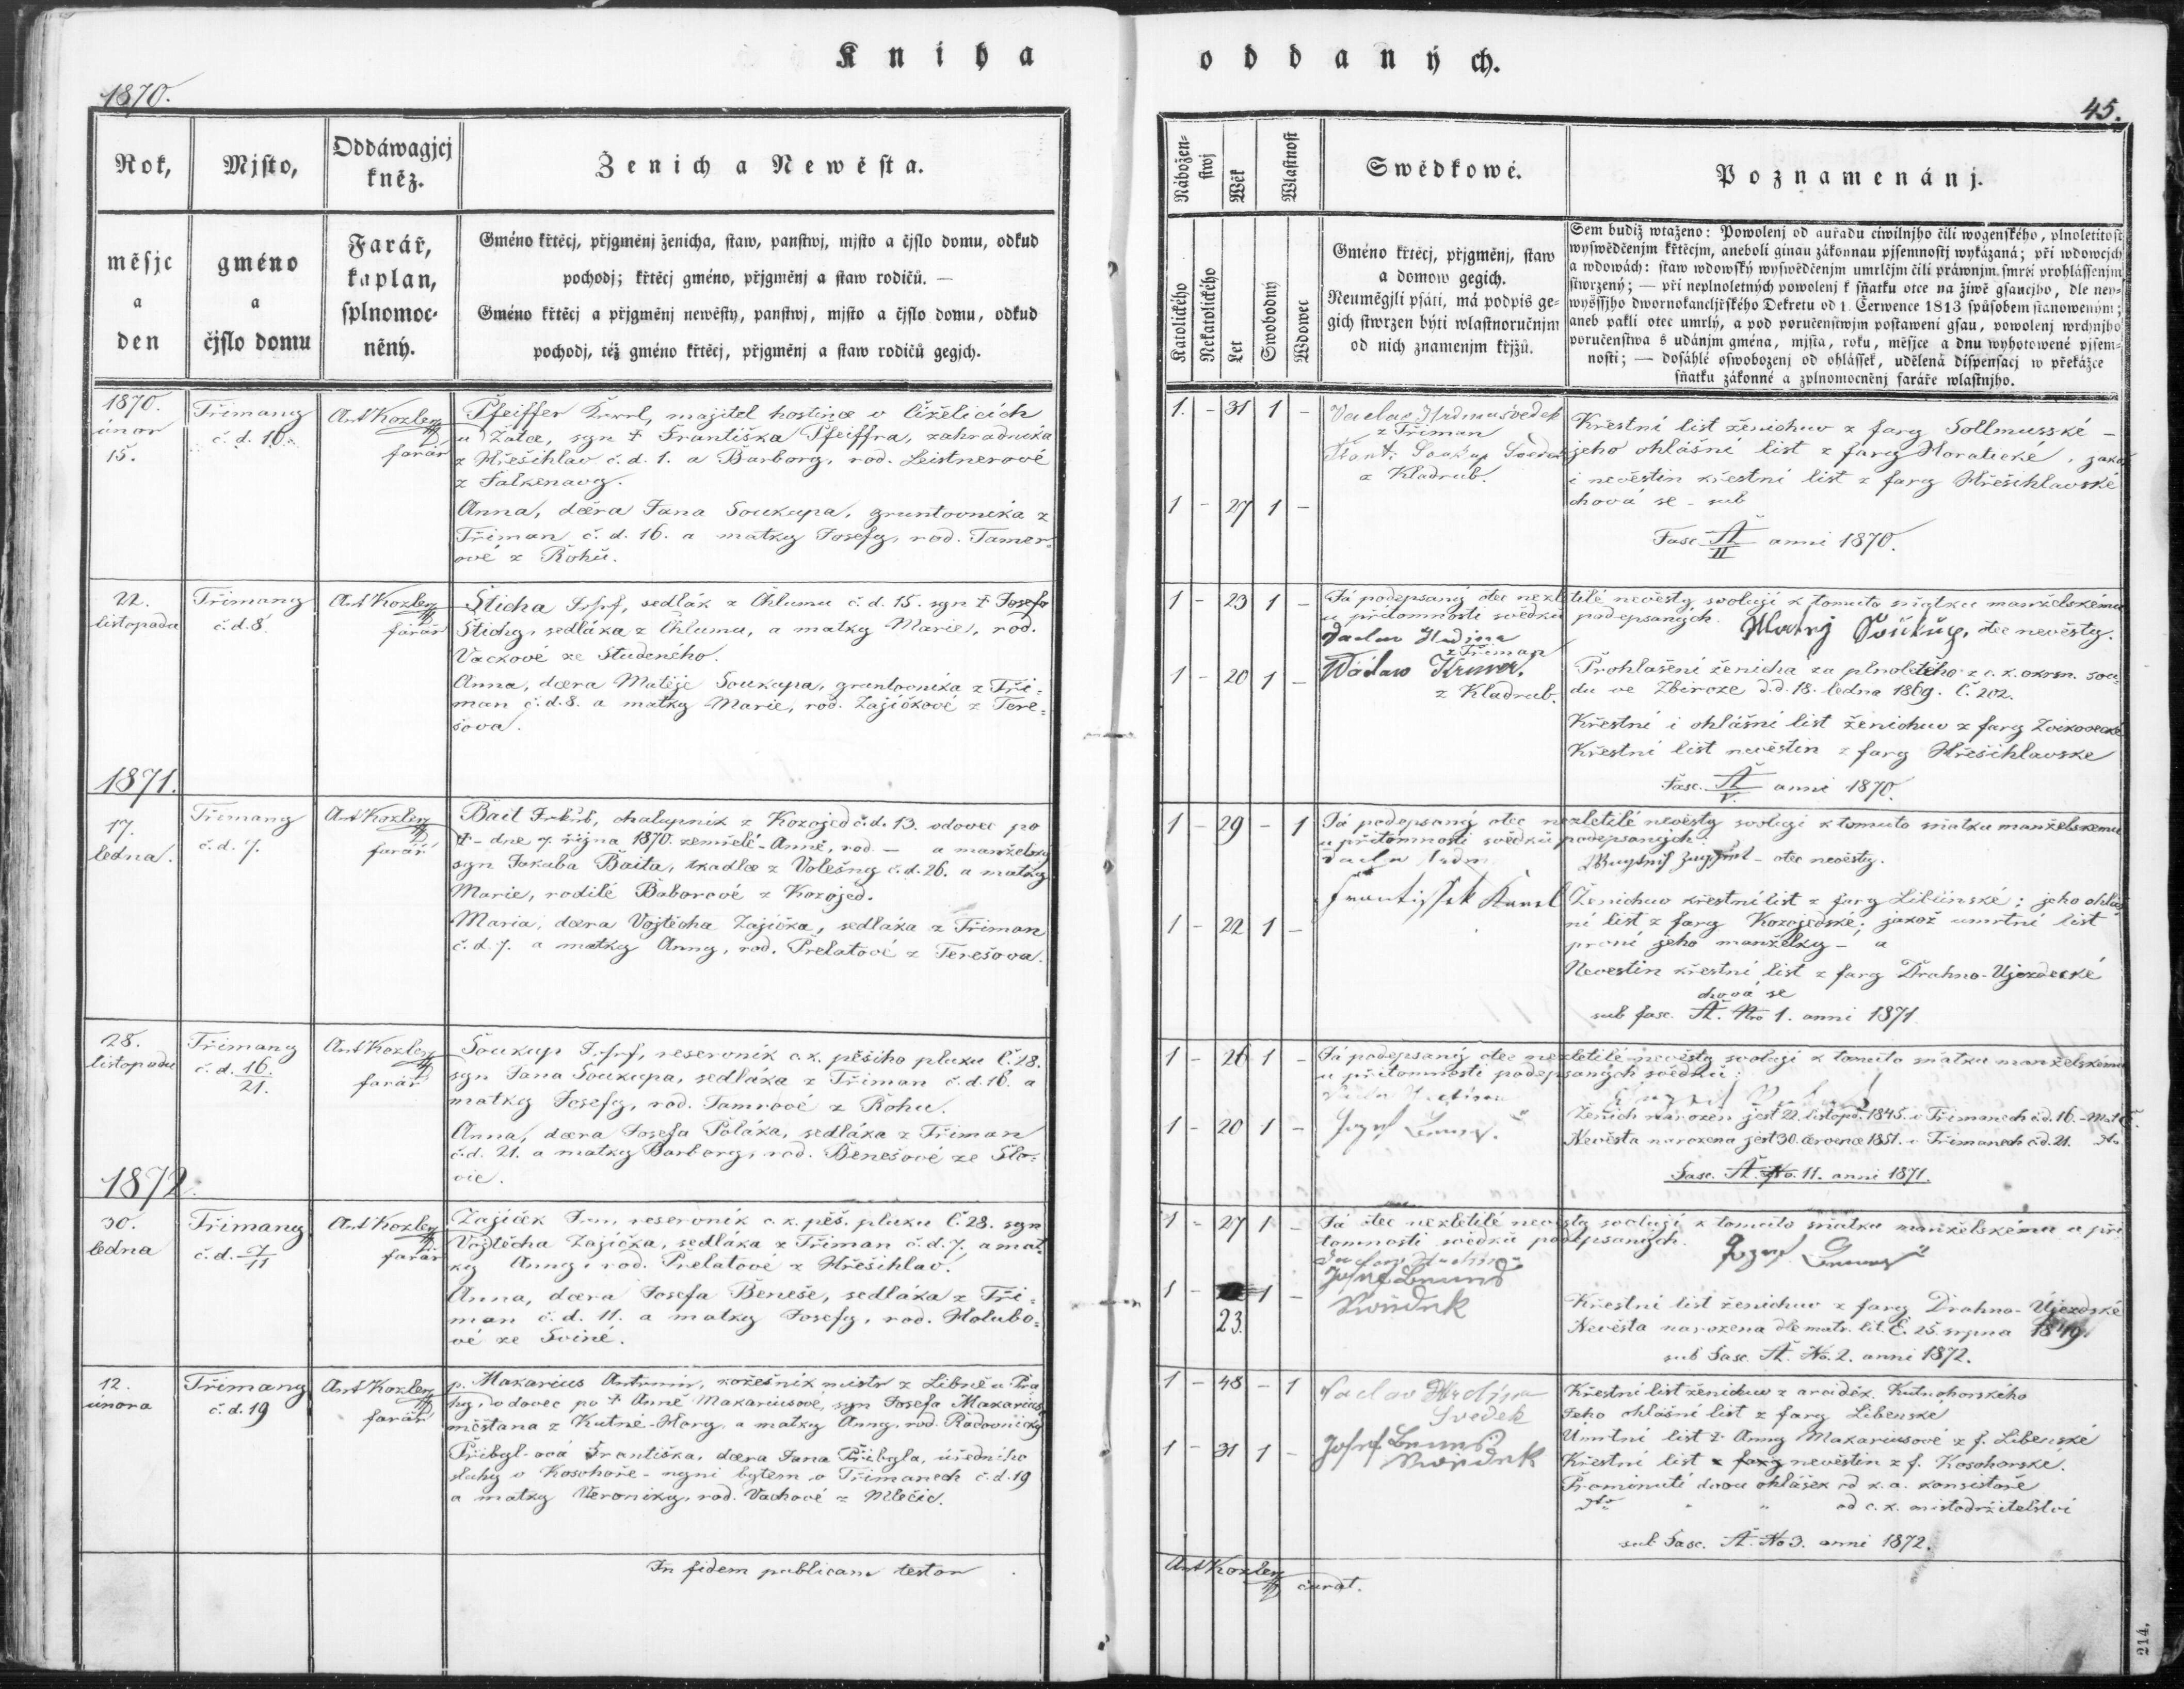 Kniha oddaných.
1870.
45.
Rok, měsjc a den
Mjsto, gméno a čjslo domu
Oddáwagjcj kněz. Farář, kaplan, splnomocněný.
Ženich a Newěsta.
Gméno křtěcj, přjgměnj ženicha, staw, panstwj, mjsto a čjslo domu, odkud
pochodj; křtěcj gméno, přjgměnj a staw rodičů. —
Gméno křtěcj a přjgměnj newěsty, panstwj, mjsto a čjslo domu, odkud
pochodj, též gméno křtěcj, přjgměnj a staw rodičů gegjch.
Náboženstwj
Wěk
Wlastnost
Katolického
Nekatolického
Let
Swobodný
Wdowec
Swědkowé.
Gméno křtěcj, přjgměnj, staw
a domow gegich.
Neuměgjli psáti, má podpis ge-
gich stwrzen býti wlastnoručnjm
od nich znamenjm křjžů.
Poznamenánj.
Sem budiž wtaženo: Powolenj od auřadu ciwilnjho čili wogenského, plnoletitost
wyswědčenjm křtěcjm, aneboli ginau zákonnau pjsemnostj wykázaná; při wdowcjch
a wdowách: staw wdowský wyswědčenjm umrlčjm čili práwnjm smrti prohlássenjm
stwrzený; — při neplnoletných powolenj k sňatku otce na žiwě gsaucjho, dle ney-
wyššjho dwornokancljřského Dekretu od 1. Čerwence 1813 spůsobem stanoweným;
aneb pakli otec umrlý, a pod poručenstwjm postaweni gsau, powolenj wrchnjho
poručenstwa s udánjm gména, mjsta, roku, měsjce a dnu wyhotowené pjsem-
nosti; — dosáhlé oswobozenj od ohlássek, udělená dispensacj w překážce
sňatku zákonné a zplnomocněnj faráře wlastnjho.
1870.
únor
15.
Třimany
č. d. 16.
Ant Kozler
farář
Pfeiffer Karel, majitel hostince v Čížělicích
u Žatce, syn † Františka Pfeiffra, zahradníka
z Hřešihlav č. d. 1. a Barbory, rod. Leistnerové
z Falkenavy.
Anna, dcera Jana Soukupa, gruntovníka z
Třiman č. d. 16. a matky Josefy, rod. Tamer-
ové z Rohů.
1. - 31 1 -
1 - 27 1 -
z Třiman
z Kladrub.
Křestní list ženichuv z fary Sollmusské -
jeho ohlášní list z fary Horatické, jakož
i nevěstin křestní list z fary Hřešihlavské
chová se - sub
Fasc. Ž/II anni 1870.
22.
listopadu
Třimany
č. d. 8.
Ant Kozler
farář
Šticha Josef, sedlák z Chlumu č. d. 15. syn † Josefa
Štichy, sedláka z Chlumu, a matky Marie, rod.
Vackové ze Studeného.
Anna, dcera Matěje Soukupa, gruntovníka z Tři-
man č. d. 8. a matky Marie, rod. Zajíčkové z Tere-
šova.
1 - 23 1 -
1 - 20 1 -
Já podepsaný otec nezletilé nevěsty svoluji k tomuto sňatku manželskému
u přítomnosti svědků podepsaných. Matěj Soukup, otec nevěsty.
Vaclav Hudina
z Třiman
Wáclaw
z Kladrub.
Prohlášení ženicha za plnoletého z c. k. okresn. sou-
du ve Zbiroze d.d. 18. ledna 1869. Č. 202.
Křestní i ohlášní list ženichuv z fary Zvíkovecké
Křestní list nevěstin z fary Hřešihlavske
Fasc. Ž/V. anni 1870.
1871.
17.
ledna.
Třimany
č. d. 7.
Ant Kozler
farář
Bait Jakub, chalupník z Kozojed č. d. 13. vdovec po
† - dne 7. října 1870. zemřelé - Anně, rod. - a manželky
syn Jakuba Baita, tkadlce z Volešny č. d. 26. a matky
Marie, rodilé Báborové z Kozojed.
Maria, dcera Vojtěcha Zajíčka, sedláka z Třiman
č. d. 7. a matky Anny, rod. Prelatové z Terešova.
1 - 29 - 1
1 - 22 1 -
Já podepsaný otec nezletilé nevěsty svoluji k tomuto sňatku manželskemu
u přítomnosti svědků podepsaných.
- otec nevěsty.
Frantissek
Ženichuv křestní list z fary Liblínské; jeho ohláš-
ní list z fary Kozojedské; jakož umrtní list
první jeho manželky - a
Nevestin křestní list z fary Drahno-Ujezdecké
chová se
sub fasc. Ž. Nro 1. anni 1871
28.
listopadu
Třimany
č. d. 16.
21.
Ant Kozler
farář
Soukup Josef, reservník c. k. pěšího pluku Č. 28.
syn Jana Soukupa, sedláka z Třiman č. d. 16. a
matky Josefy, rod. Tamrové z Rohu.
Anna, dcera Josefa Poláka, sedláka z Třiman
č. d. 21. a matky Barbory, rod. Benešové ze Slo-
vic.
1 - 26 1 -
1 - 20 1 -
Já podepsaný otec nezletilé nevěsty svoluji k tomuto sňatku manželskému
u přítomnosti podepsaných svědků:
Ženich narozen jest 22. listopd. 1845. v Třimanech č.d. 16.
Nevěsta narozena jest 30. července 1851. v Třimanech č.d. 21.
Fasc. Ž. No. 11. anni 1871.
1872.
30.
ledna
Třimany
č. d. 7/11
Ant Kozler
farář
Zajíček Jan, reservník c. k. pěš. pluku Č. 28. syn
Vojtěcha Zajíčka, sedláka z Třiman č. d. 7. a mat-
ky Anny, rod. Prelatové z Hřešihlav.
Anna, dcera Josefa Beneše, sedláka z Tři-
man č. d. 11. a matky Josefy, rod. Holubo-
vé ze Sviné.
1 - 27 1 -
1 - 1 -
23.
Já otec nezletilé nevěsty svoluji k tomuto sňatku manželskému u pří-
tomnosti svědků podepsaných.
Křestní list ženichuv z fary Drahno-Újezdské
Nevěsta narozena dle matr. lit. E. 25. srpna 1849.
sub Fasc. Ž. No. 2. anni 1872.
12.
února
Třimany
č. d. 19
Ant Kozler
farář
p. Makarius Antonín, kožešník mistr z Libně u Pra-
hy, vdovec po † Anně Makariusové, syn Josefa Makariusa
měštana z Kutné-Hory, a matky Anny, rod. Radovnický
Přibyl-ová Františka, dcera Jana Přibyla, úředního
sluhy v Kosohoře - nyní bytem v Třimanech č. d. 19
a matky Veroniky, rod. Vachové z Mlečic.
1 - 48 - 1
1 - 31 1 -
Vaclav Hudina
Svedek
Josef
Křestní list ženichuv z arciděk. Kutnohorského
Jeho ohlášní list z fary Libenské
Úmrtní list † Anny Makariusové z f. Libenské
Křestní list z fary nevěstin z f. Kosohorske.
Prominutí dvou ohlášek od k. a. konsistoře
dto " " od c. k. místodržitelství
sub Fasc. Ž. No 3. anni 1872.
In fidem publicam testor
Ant Kozler
curat.
214.